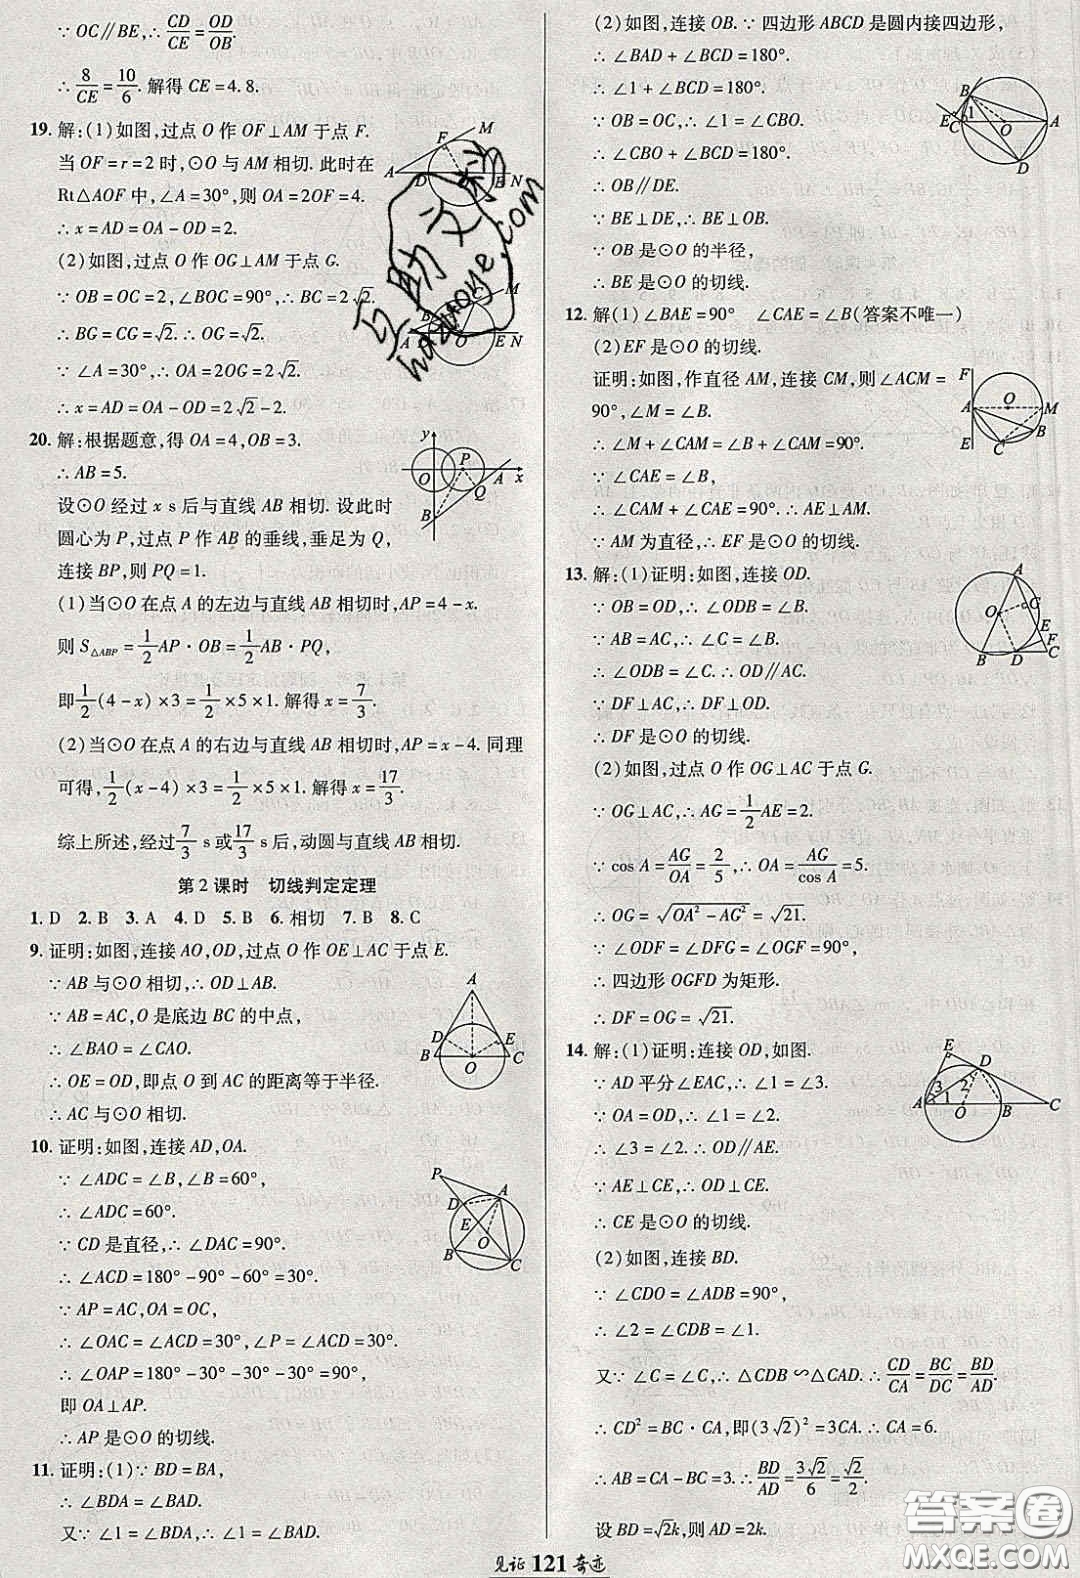 ∵ OC∥BE,∴ CD/CE = OD/OB.
∴ 8/CE = 10/6. 解得 CE=4.8.
19. 解:(1)如图,过点 O 作 OF⊥AM 于点 F.
当 OF=r=2 时,⊙O 与 AM 相切. 此时在
Rt△AOF 中,∠A=30°,则 OA=2OF=4.
∴ x=AD=OA-OD=2.
(2)如图,过点 O 作 OG⊥AM 于点 G.
∵ OB=OC=2,∠BOC=90°,∴ BC=2√2.
∴ BG=CG=√2.∴ OG=√2.
∵ ∠A=30°,∴ OA=2OG=2√2.
∴ x=AD=OA-OD=2√2-2.
20. 解:根据题意,得 OA=4,OB=3.
∴ AB=5.
设⊙O 经过 x s 后与直线 AB 相切. 设此时
圆心为 P,过点 P 作 AB 的垂线,垂足为 Q,
连接 BP,则 PQ=1.
(1)当⊙O 在点 A 的左边与直线 AB 相切时,AP=4-x.
则 S△ABP = 1/2 AP·OB = 1/2 AB·PQ,
即 1/2 (4-x)×3 = 1/2 ×5×1. 解得 x = 7/3.
(2)当⊙O 在点 A 的右边与直线 AB 相切时,AP=x-4. 同理
可得, 1/2 (x-4)×3 = 1/2 ×5×1. 解得 x = 17/3.
综上所述,经过 7/3 s 或 17/3 s 后,动圆与直线 AB 相切.
第 2 课时 切线判定定理
1. D 2. B 3. A 4. D 5. B 6. 相切 7. B 8. C
9. 证明:如图,连接 AO,OD,过点 O 作 OE⊥AC 于点 E.
∵ AB 与⊙O 相切,∴ OD⊥AB.
∵ AB=AC,O 是底边 BC 的中点,
∴ ∠BAO=∠CAO.
∴ OE=OD,即点 O 到 AC 的距离等于半径.
∴ AC 与⊙O 相切.
10. 证明:如图,连接 AD,OA.
∵ ∠ADC=∠B,∠B=60°,
∴ ∠ADC=60°.
∵ CD 是直径,∴ ∠DAC=90°.
∴ ∠ACD=180°-90°-60°=30°.
∵ AP=AC,OA=OC,
∴ ∠OAC=∠ACD=30°,∠P=∠ACD=30°.
∴ ∠OAP=180°-30°-30°-30°=90°,
即 OA⊥AP.
∴ AP 是⊙O 的切线.
11. 证明:(1)∵ BD=BA,
∴ ∠BDA=∠BAD.
又∵ ∠1=∠BDA,∴ ∠1=∠BAD.
(2)如图,连接 OB.∵ 四边形 ABCD 是圆内接四边形,
∴ ∠BAD+∠BCD=180°.
∴ ∠1+∠BCD=180°.
∵ OB=OC,∴ ∠BCO=∠CBO.
∴ ∠CBO+∠BCD=180°.
∴ OB∥DE.
∵ BE⊥DE,∴ BE⊥OB.
∵ OB 是⊙O 的半径,
∴ BE 是⊙O 的切线.
12. 解(1)∠BAE=90° ∠CAE=∠B(答案不唯一)
(2)EF 是⊙O 的切线.
证明:如图,作直径 AM,连接 CM,则∠ACM=
90°,∠M=∠B.
∴ ∠M+∠CAM=∠B+∠CAM=90°.
∵ ∠CAE=∠B,
∴ ∠CAM+∠CAE=90°.∴ AE⊥AM.
∵ AM 为直径,∴ EF 是⊙O 的切线.
13. 解:(1)证明:如图,连接 OD.
∵ OB=OD,∴ ∠ODB=∠B.
∵ AB=AC,∴ ∠C=∠B.
∴ ∠ODB=∠C.∴ OD∥AC.
∵ DF⊥AC,∴ DF⊥OD.
∴ DF 是⊙O 的切线.
(2)如图,过点 O 作 OG⊥AC 于点 G.
∵ OG⊥AC,∴ AG = 1/2 AE = 2.
∵ cos A = AG/OA = 2/5,∴ OA = AG/cos A = 5.
∴ OG = √(OA²-AG²) = √21.
∵ ∠ODF=∠DFG=∠OGF=90°,
∴ 四边形 OGFD 为矩形.
∴ DF=OG=√21.
14. 解:(1)证明:连接 OD,如图.
∵ AD 平分∠EAC,∴ ∠1=∠3.
∵ OA=OD,∴ ∠1=∠2.
∴ ∠3=∠2.∴ OD∥AE.
∵ AE⊥CE,∴ OD⊥CE.
∴ CE 是⊙O 的切线.
(2)如图,连接 BD.
∵ ∠CDO=∠ADB=90°,
∴ ∠2=∠CDB=∠1.
又∵ ∠C=∠C,∴ △CDB∽△CAD.∴ CD/CA = BC/DC = BD/AD.
∴ CD²=BC·CA,即(3√2)²=3CA.∴ CA=6.
∴ AB=CA-BC=3.∴ BD/AD = 3√2/6 = √2/2.
设 BD=√2k,则 AD=2k.
见证 121 奇迹
互助文学
hazuoye.com
答案圈
MXQE.COM